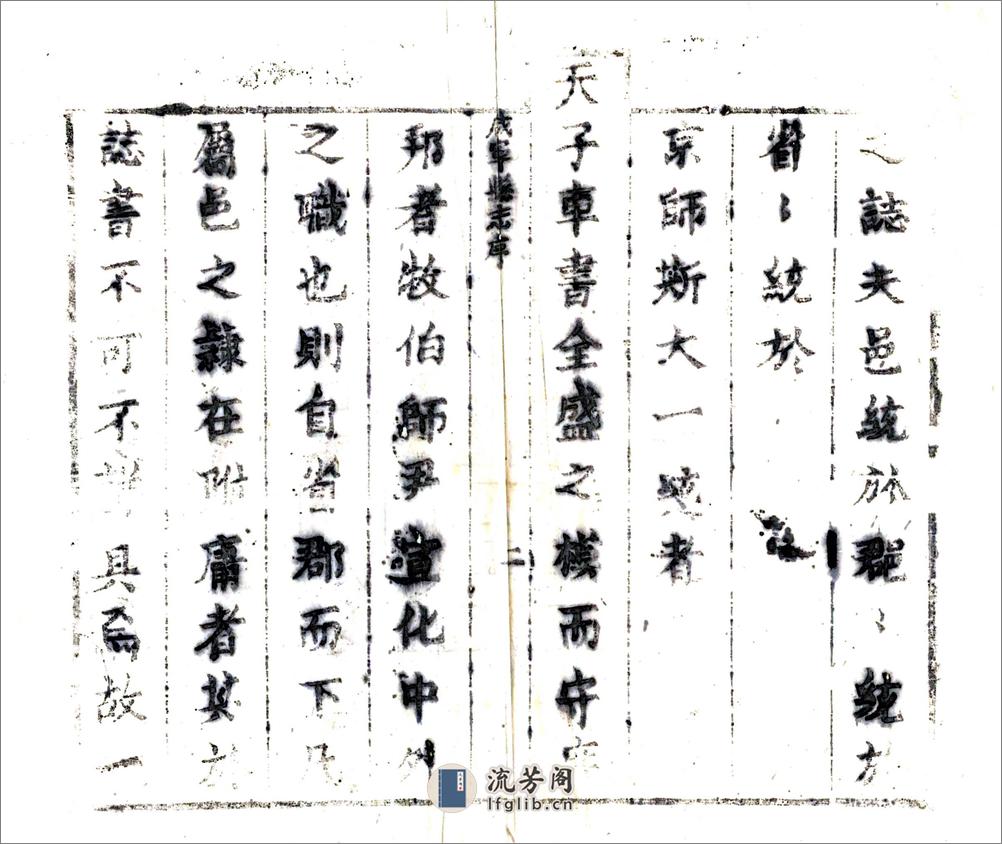 之誌夫邑統於郡〻統於
省〻統於
京師斯大一統者
天子車書全盛之模而守
縣志
二
邦者牧伯師尹宣化中外
之職也則自省郡而下及
屬邑之隸在附庸者其於
誌書不可不具焉故一
流芳阁
lfglib.cn